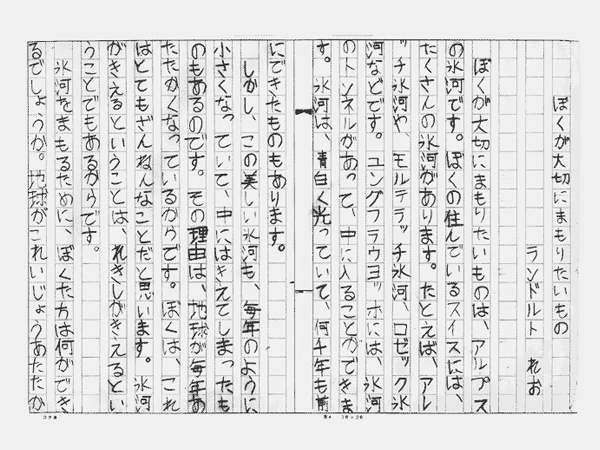 ぼくが大切にまもりたいもの
ランドルト れお
ぼくが大切にまもりたいものは、アルプス
の氷河です。ぼくの住んでいるスイスには、
たくさんの氷河があります。たとえば、アレ
ッチ氷河や、モルテラッチ氷河、ロゼック氷
河などです。ユングフラウヨッホには、氷河
のトンネルがあって、中に入ることができま
す。氷河は、青白く光っていて、何千年も前
にできたものもあります。
しかし、この美しい氷河も、毎年のように
小さくなっていて、中にはきえてしまったも
のもあるのです。その理由は、地球が毎年あ
たたかくなっているからです。ぼくは、これ
はとてもざんねんなことだと思います。氷河
がきえるということは、れきしがきえるとい
うことでもあるからです。
氷河をまもるために、ぼくた方は何ができ
るでしょうか。地球がこれいじょうあたたか